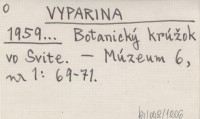 0
VYPARINA
1959... Botanický krúžok
vo Svite. – Múzeum 6,
nr 1: 69-71.